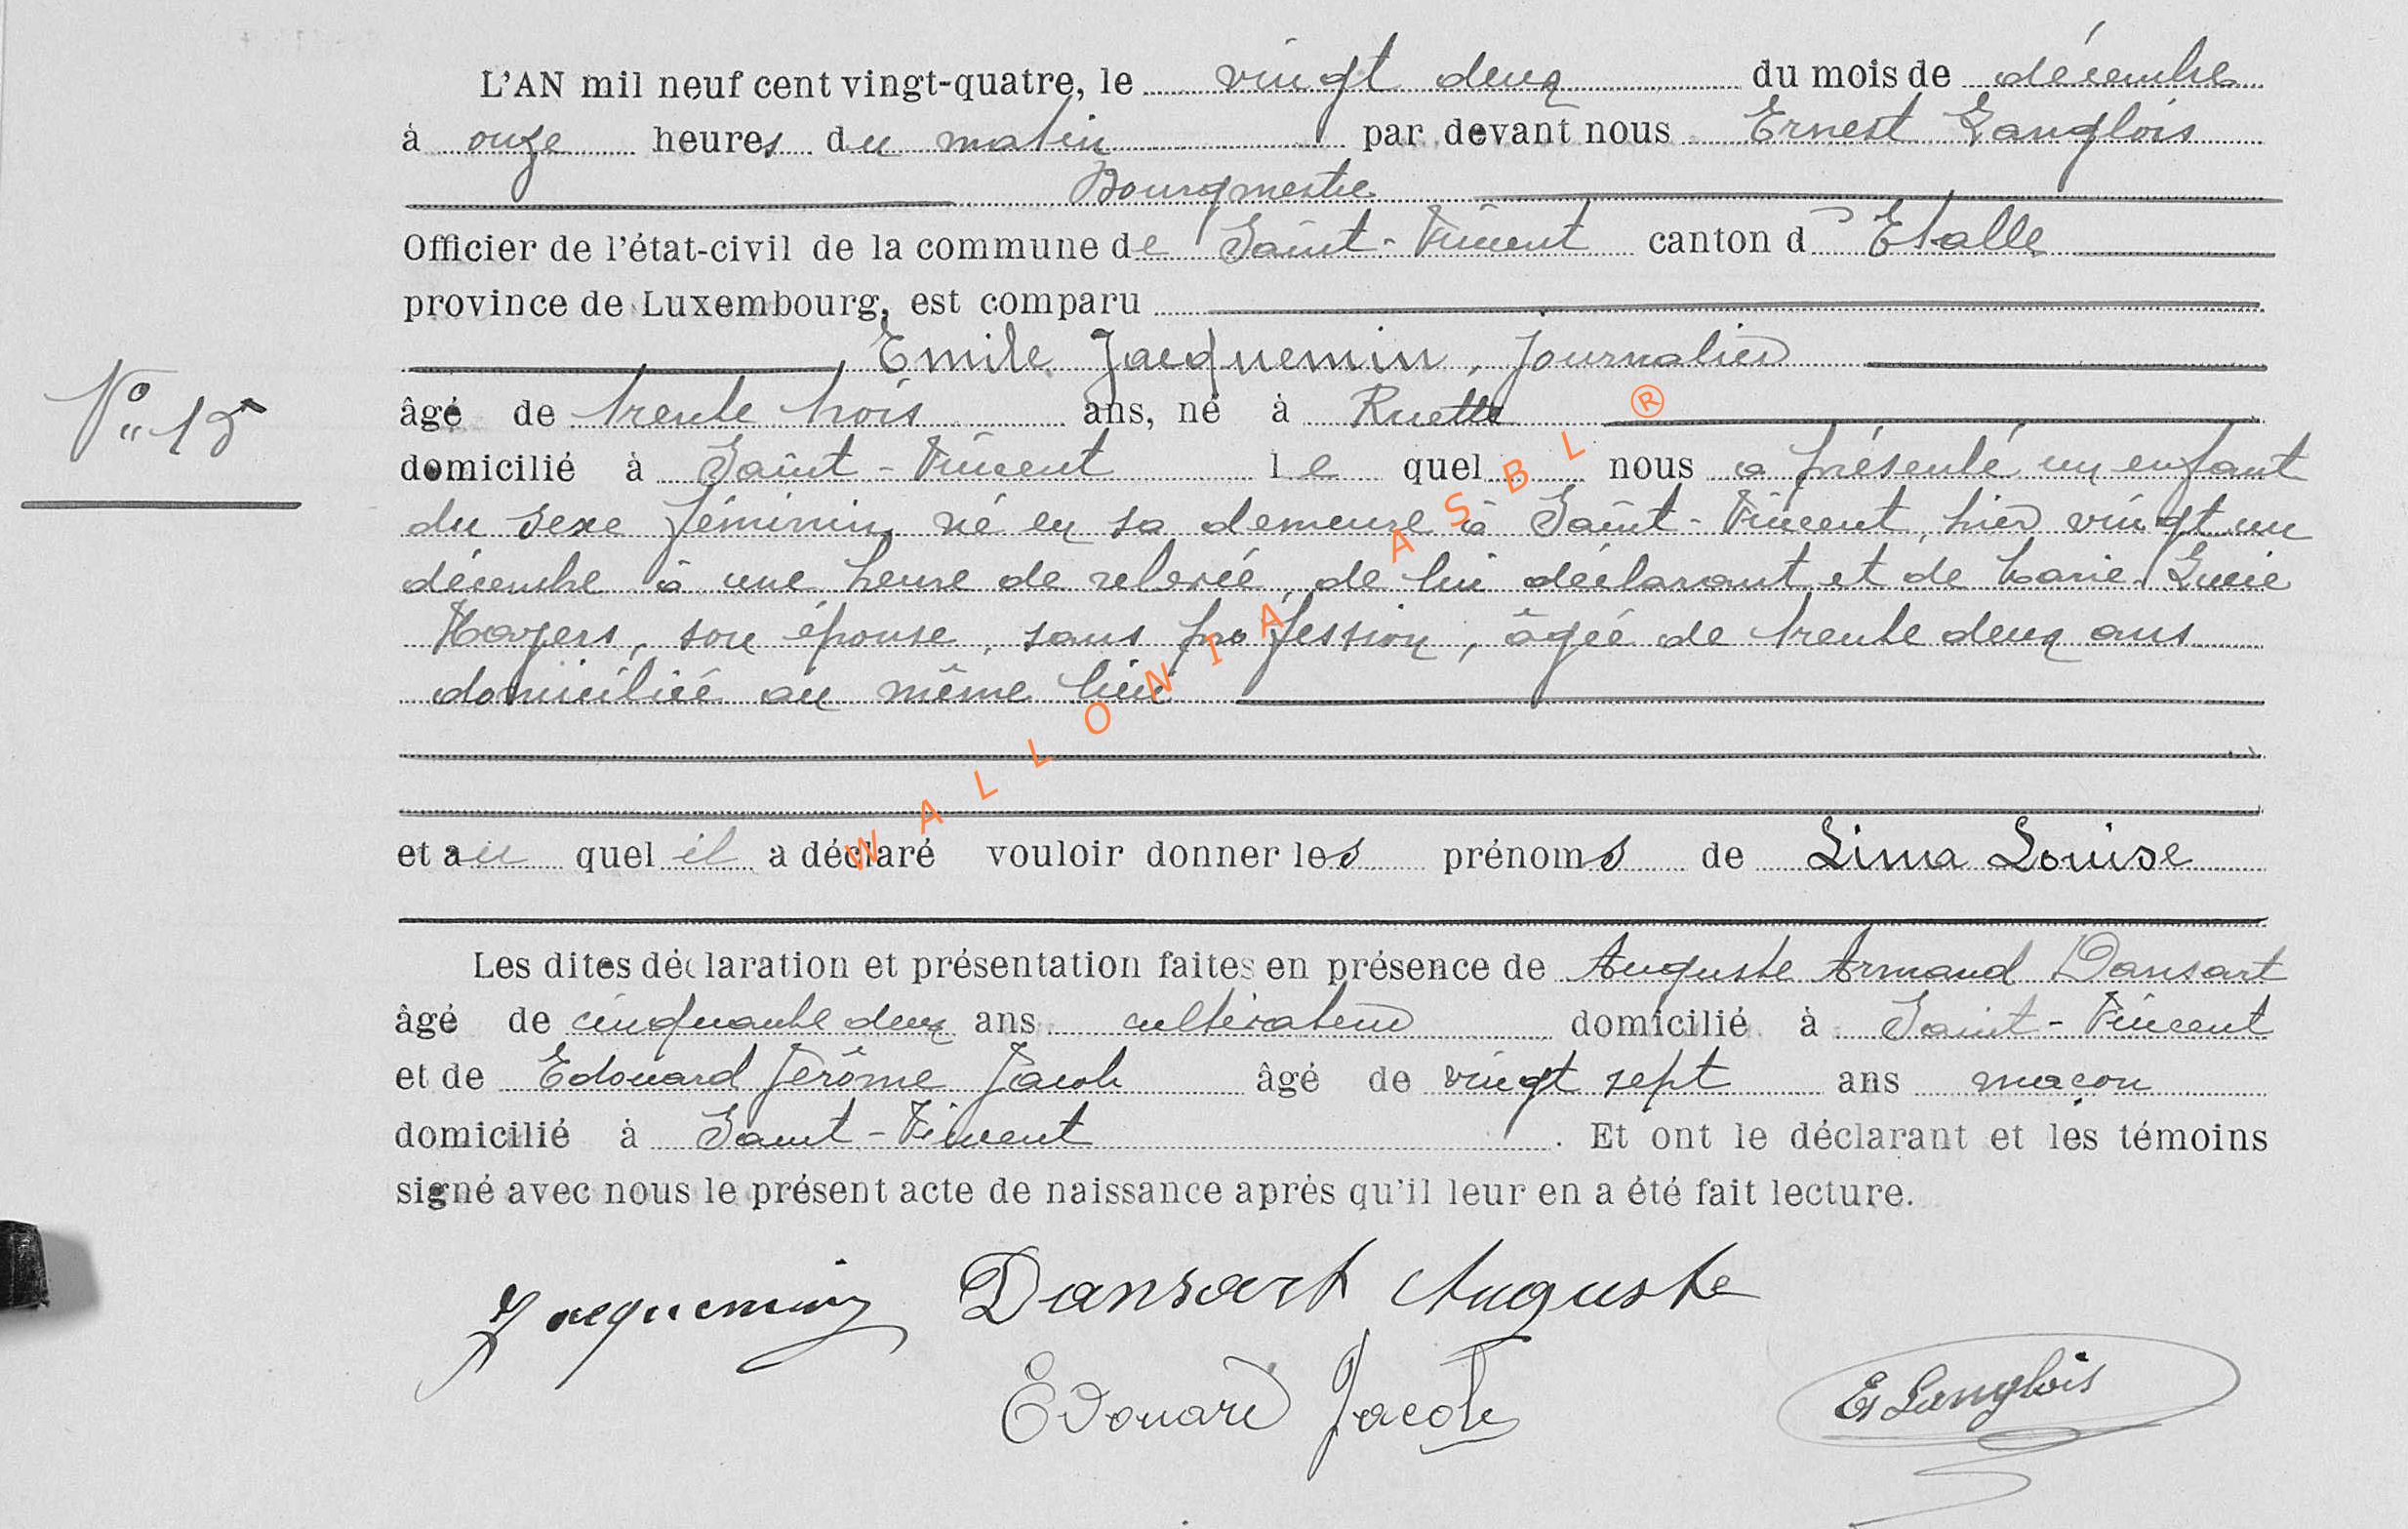 L'AN mil neuf cent vingt-quatre, le vingt deux du mois de décembre
à onze heures du matin par devant nous Ernest Langlois
Bourgmestre
Officier de l'état-civil de la commune de Saint-Vincent canton d' Etalle
province de Luxembourg, est comparu
Emile Jacquemin, journalier
N° 15
âgé de trente trois ans, né à Ruette
domicilié à Saint-Vincent le quel nous a présenté un enfant
du sexe féminin né en sa demeure à Saint-Vincent, hier vingt un
décembre à une heure de relevée, de lui déclarant et de Marie Lucie
son épouse, sans profession, âgée de trente deux ans
domiciliée au même lieu
et au quel il a déclaré vouloir donner les prénoms de Lima Louise
Les dites déclaration et présentation faites en présence de Auguste Armand Dansart
âgé de cinquante deux ans cultivateur domicilié à Saint-Vincent
et de Edouard Jérôme Jacob âgé de vingt sept ans maçon
domicilié à Saint-Vincent. Et ont le déclarant et les témoins
signé avec nous le présent acte de naissance après qu'il leur en a été fait lecture.
Jacquemin Dansart Auguste
Edouard Jacob Es Langlois
WALLONIA ASBL ®